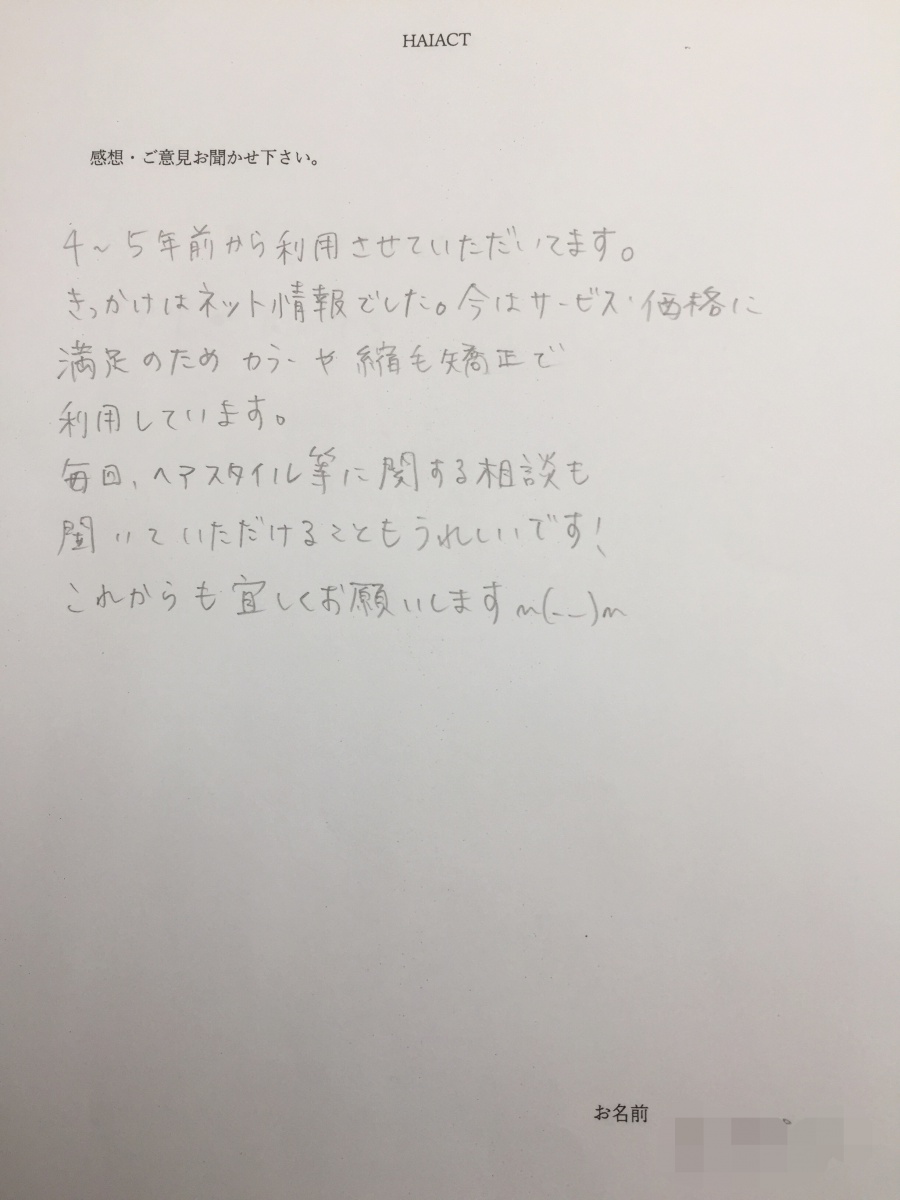 HAIACT
感想・ご意見お聞かせ下さい。
4~5年前から利用させていただいてます。
きっかけはネット情報でした。今はサービス・価格に
満足のためカラーや縮毛矯正で
利用しています。
毎回、ヘアスタイル等に関する相談も
聞いていただけることもうれしいです!
これからも宜しくお願いしますm(_ _)m
お名前